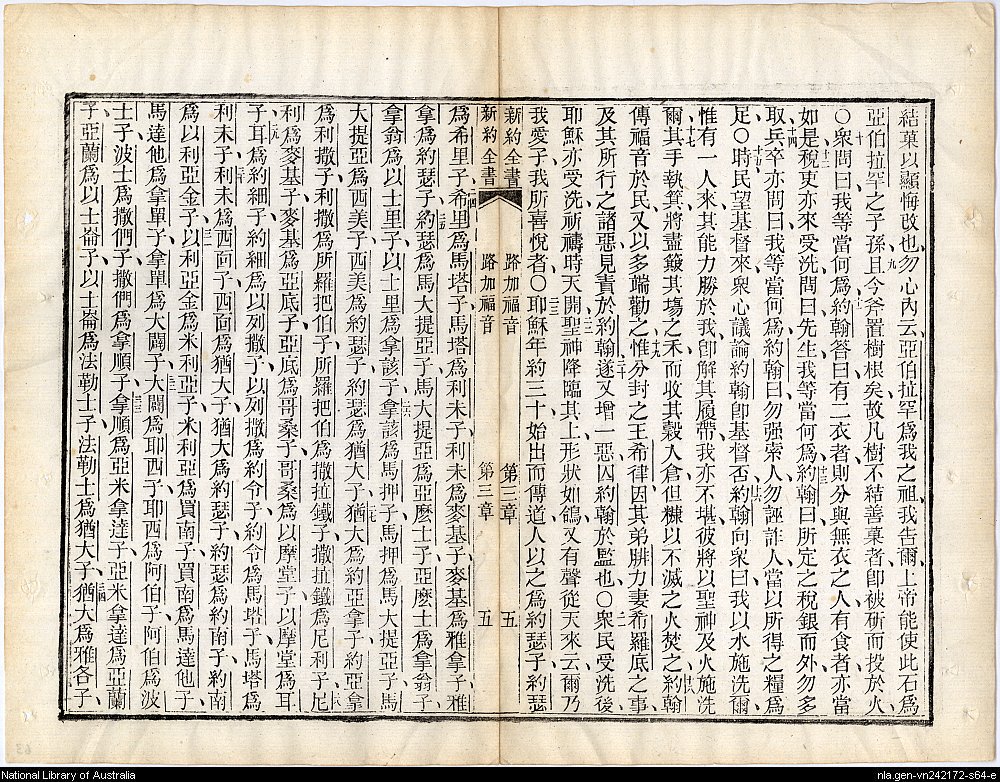 結菓以顯悔改也勿心內云亞伯拉罕爲我之祖我告爾上帝能使此石爲
亞伯拉罕之子孫且今斧置樹根矣故凡樹不結善菓者卽被斫而投於火
○衆問曰我等當何爲約翰答曰有二衣者則分與無衣之人有食者亦當
如是稅吏亦來受洗問曰先生我等當何爲約翰曰所定之稅銀而外勿多
取兵卒亦問曰我等當何爲約翰曰勿强索人勿誣詐人當以所得之糧爲
足○時民望基督來衆心議論約翰卽基督否約翰向衆曰我以水施洗爾
惟有一人來其能力勝於我卽解其履帶我亦不堪彼將以聖神及火施洗
爾其手執箕將盡簸其塲之禾而收其穀入倉但糠以不滅之火焚之約翰
傳福音於民又以多端勸之惟分封之王希律因其弟腓力妻希羅底之事
及其所行之諸惡見責於約翰遂又增一惡囚約翰於監也○衆民受洗後
耶穌亦受洗祈禱時天開聖神降臨其上形狀如鴿又有聲從天來云爾乃
我愛子我所喜悅者○耶穌年約三十始出而傳道人以之爲約瑟子約瑟
新約全書 路加福音 第三章 五
新約全書 路加福音 第三章 五
爲希里子希里爲馬塔子馬塔爲利未子利未爲麥基子麥基爲雅拿子雅
拿爲約瑟子約瑟爲馬大提亞子馬大提亞爲亞麽士子亞麽士爲拿翁子
拿翁爲以士里子以士里爲拿該子拿該爲馬押子馬押爲馬大提亞子馬
大提亞爲西美子西美爲約瑟子約瑟爲猶大子猶大爲約亞拿子約亞拿
爲利撒子利撒爲所羅把伯子所羅把伯爲撒拉鐵子撒拉鐵爲尼利子尼
利爲麥基子麥基爲亞底子亞底爲哥桑子哥桑爲以摩堂子以摩堂爲耳
子耳爲約細子約細爲以列撒子以列撒爲約令子約令爲馬塔子馬塔爲
利未子利未爲西面子西面爲猶大子猶大爲約瑟子約瑟爲約南子約南
爲以利亞金子以利亞金爲米利亞子米利亞爲買南子買南爲馬達他子
馬達他爲拿單子拿單爲大闢子大闢爲耶西子耶西爲阿伯子阿伯爲波
士子波士爲撒們子撒們爲拿順子拿順爲亞米拿達子亞米拿達爲亞蘭
子亞蘭爲以士崙子以士崙爲法勒士子法勒士爲猶大子猶大爲雅各子
National Library of Australia
nla.gen-vn242172-s64-e